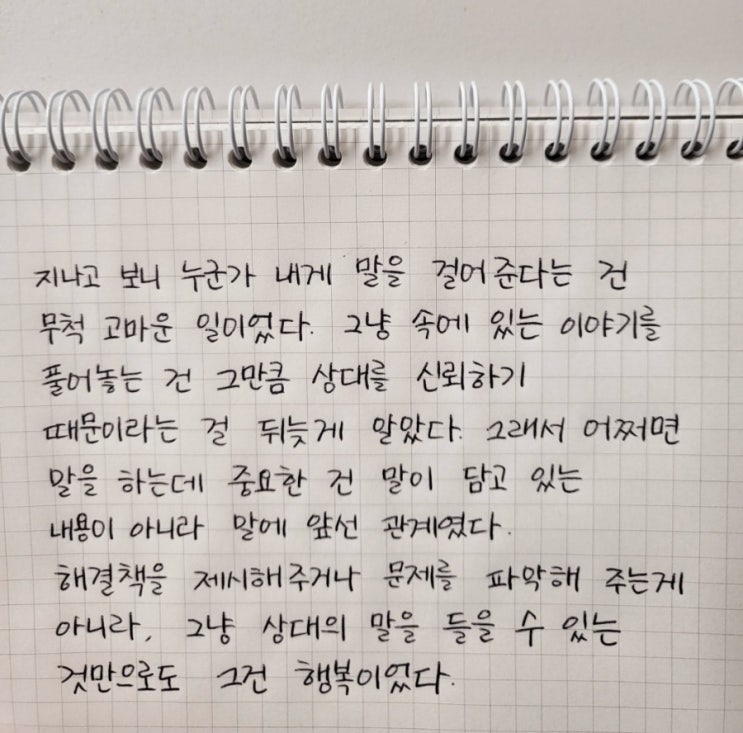 지나고 보니 누군가 내게 말을 걸어준다는 건
무척 고마운 일이었다. 그냥 속에 있는 이야기를
풀어놓는 건 그만큼 상대를 신뢰하기
때문이라는 걸 뒤늦게 알았다. 그래서 어쩌면
말을 하는데 중요한 건 말이 담고 있는
내용이 아니라 말에 앞선 관계였다.
해결책을 제시해주거나 문제를 파악해 주는게
아니라, 그냥 상대의 말을 들을 수 있는
것만으로도 그건 행복이었다.